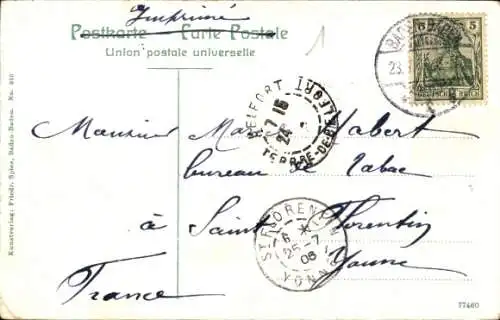 Imprimé
Postkarte — Carte Postale
Union postale universelle
1
5 5
DEUTSCHES REICH
BADEN
23.
BELFORT
7 15
24
TERRRE-DE-BELFORT
Monsieur Marc Habert
bureau de Tabac
à Saint Florentin
Yonne
France
ST FLORENTIN
6
25-7
06
YONNE
Kunstverlag: Friedr. Spies, Baden-Baden. No. 810
77460